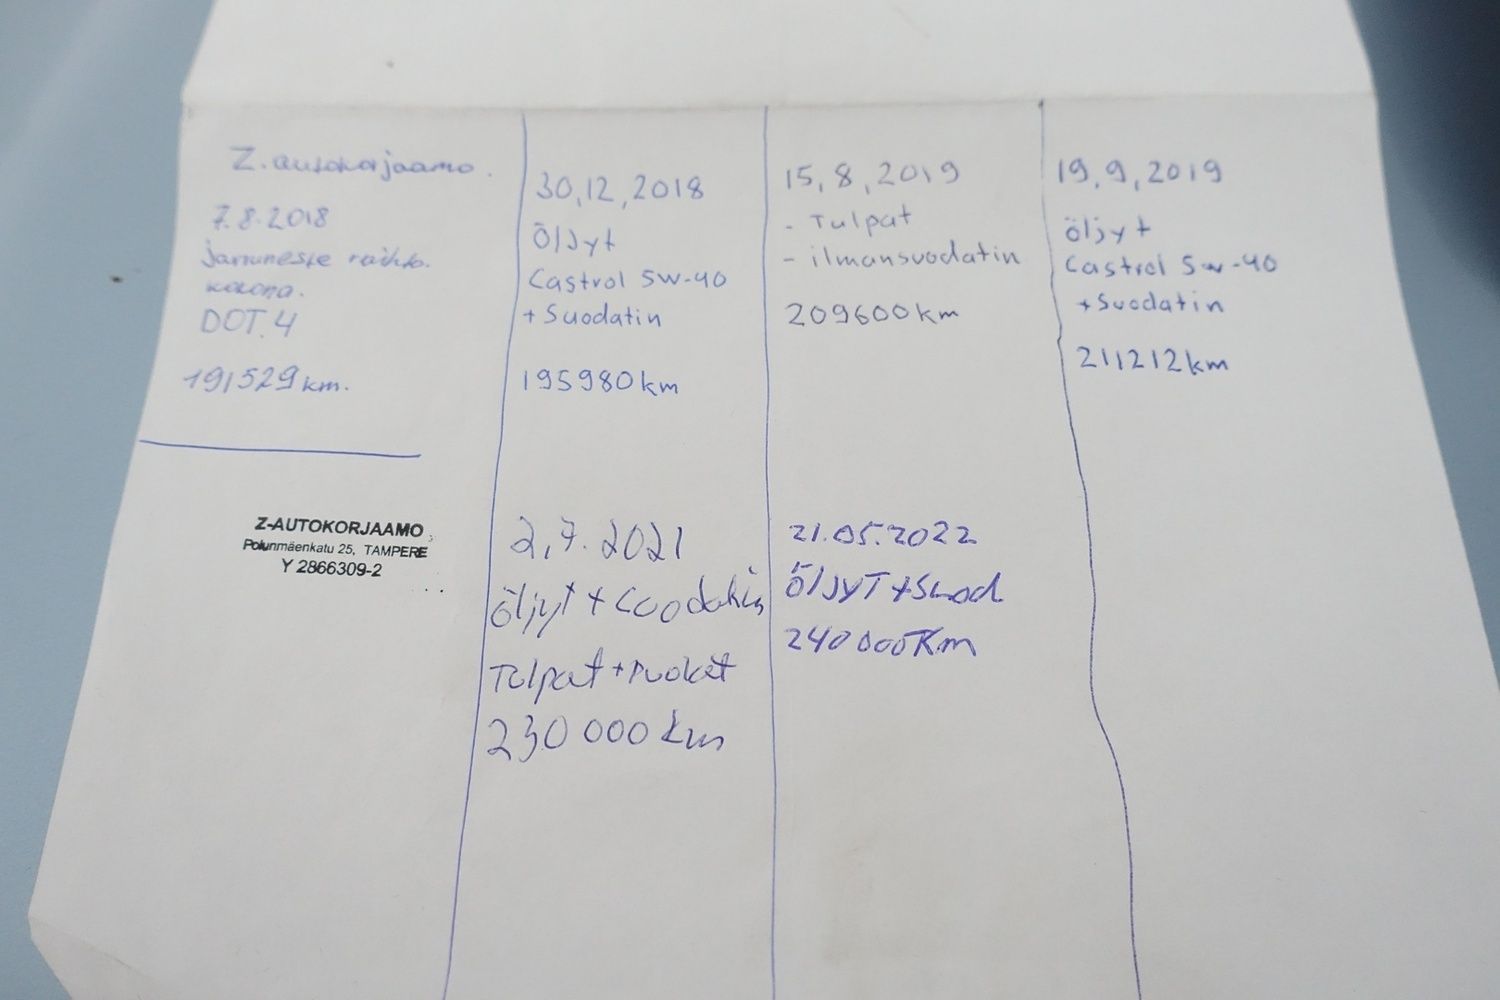 Z. autokorjaamo.
7.8.2018
jarruneste vaihto.
DOT.4
191529 km.
Z-AUTOKORJAAMO
Polunmäenkatu 25, TAMPERE
Y 2866309-2
30,12,2018
Öljyt
Castrol 5w-40
+ Suodatin
195980 km
2,7.2021
Öljyt + Suodatin
Tulpat + puolat
230 000 km
15,8,2019
- Tulpat
- ilmansuodatin
209600 km
21.05.2022
ÖljyT + Suod.
240 000 Km
19,9,2019
Öljyt
Castrol 5w-40
+ Suodatin
211212 km